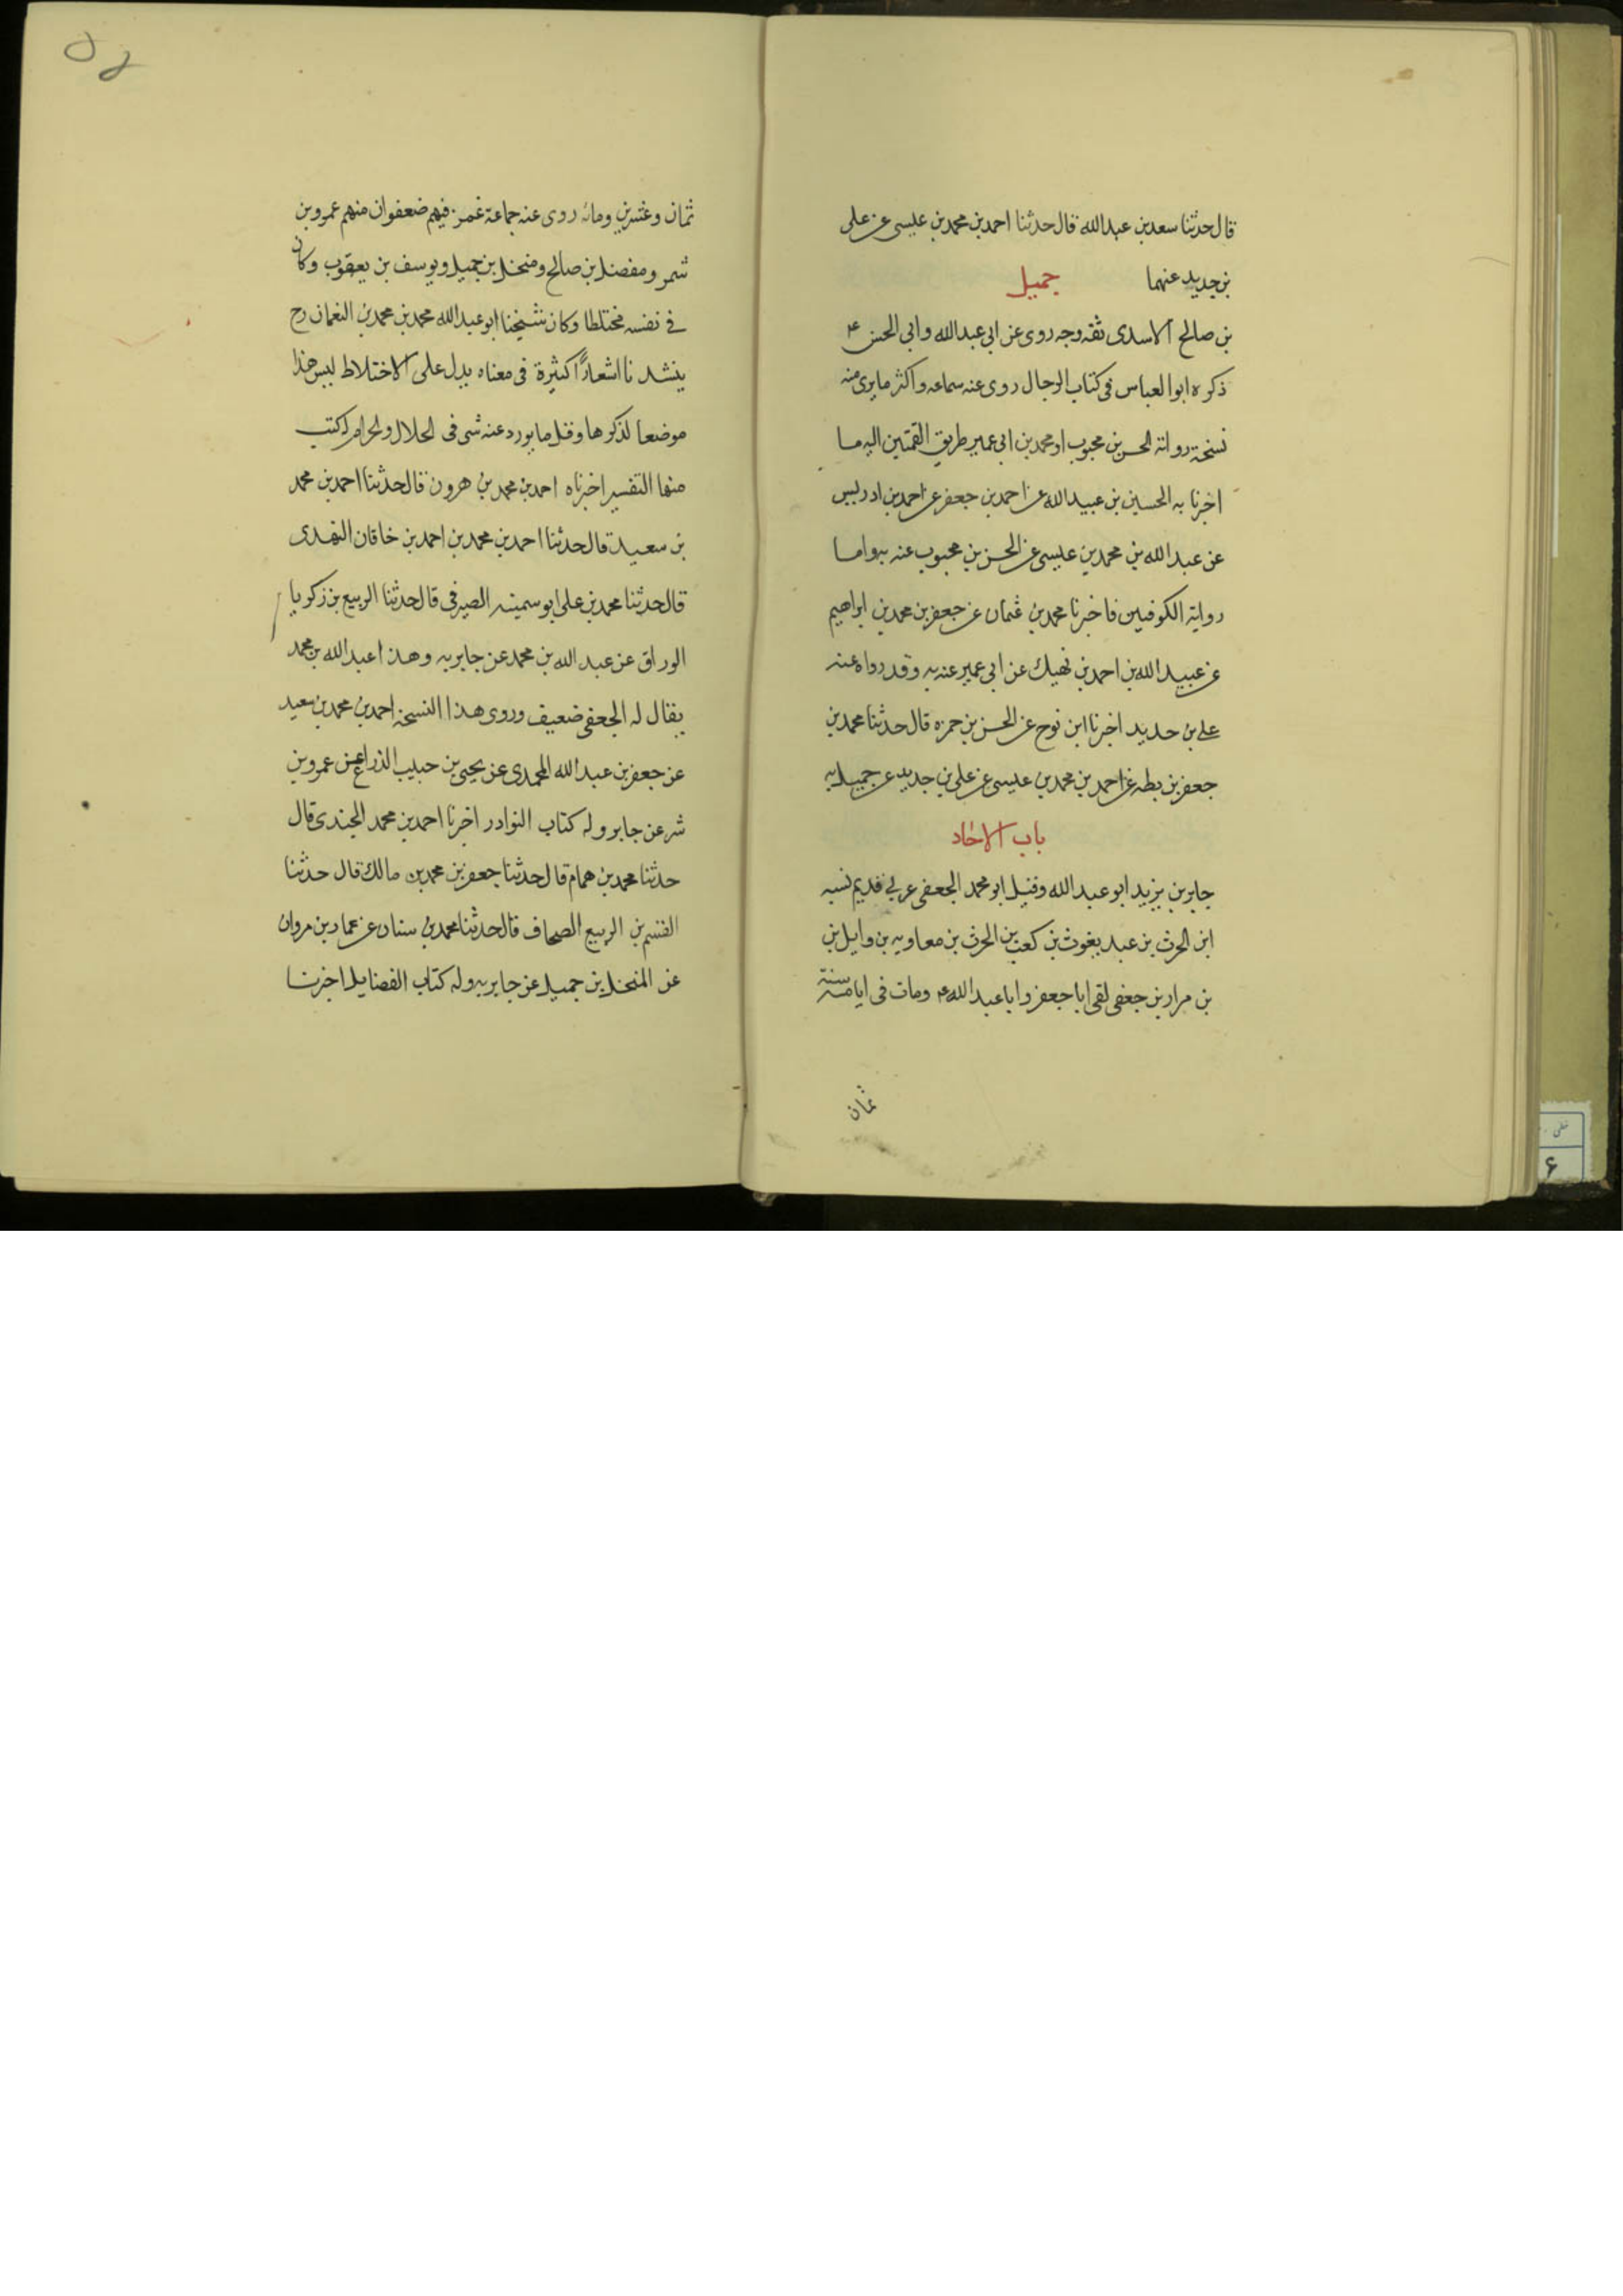 قال حدثنا سعد بن عبد الله قال حدثنا احمد بن محمد بن عيسى عن على
بن حديد عنهما جميل
بن صالح الاسدى ثقه وجه روى عن ابى عبد الله وابى الحسن ع
ذكره ابو العباس فى كتاب الرجال روى عنه سماعه واكثر ما يرى منه
نسخة رواية الحسن بن محبوب او محمد بن ابى عمير طريق القميين اليه ما
اخبرنا به الحسين بن عبيد الله عن احمد بن جعفر عن احمد بن ادريس
عن عبد الله بن محمد بن عيسى عن الحسن بن محبوب عنه به واما
رواية الكوفيين فاخبرنا محمد بن عثمان عن جعفر بن محمد بن ابراهيم
عن عبيد الله بن احمد بن نهيك عن ابى عمير عنه به وقد رواه عنه
على بن حديد اخبرنا ابن نوح عن الحسن بن حمزه قال حدثنا محمد بن
جعفر بن بطه عن احمد بن محمد بن عيسى عن على بن حديد عن جميل به
باب الاحاد
جابر بن يزيد ابو عبد الله وقيل ابو محمد الجعفى عربى قديم نسبه
ابن الحرث بن عبد يغوث بن كعب بن الحرث بن معاويه بن وايل بن
بن مرار بن جعفى لقى ابا جعفر وابا عبد الله ع ومات فى ايامه سنة
ثمان
ثمان وعشرين ومائه روى عنه جماعة غمز فيهم ضعفوان منهم عمرو بن
شمر ومفضل بن صالح ومنخل بن جميل ويوسف بن يعقوب وكان
فى نفسه مختلطا وكان شيخنا ابو عبد الله محمد بن محمد بن النعمان رح
ينشدنا اشعارًا كثيرة فى معناه يدل على الاختلاط ليس هذا
موضعا لذكرها وقل ما يورد عنه شى فى الحلال والحرام له كتب
منها التفسير اخبرناه احمد بن محمد بن هرون قال حدثنا احمد بن محمد
بن سعيد قال حدثنا احمد بن محمد بن احمد بن خاقان النهدى
قال حدثنا محمد بن على ابو سمينه الصيرفى قال حدثنا الربيع بن زكريا
الوراق عن عبد الله بن محمد عن جابر به وهذا عبد الله بن محمد
يقال له الجعفى ضعيف وروى هذا النسخة احمد بن محمد بن سعيد
عن جعفر بن عبد الله المحمدى عن يحيى بن حبيب الذراع عن عمرو بن
شمر عن جابر وله كتاب النوادر اخبرنا احمد بن محمد الجندى قال
حدثنا محمد بن همام قال حدثنا جعفر بن محمد بن مالك قال حدثنا
القسم بن الربيع الصحاف قال حدثنا محمد بن سنان عن عمار بن مروان
عن المنخل بن جميل عن جابر به وله كتاب الفضايل اخبرنا